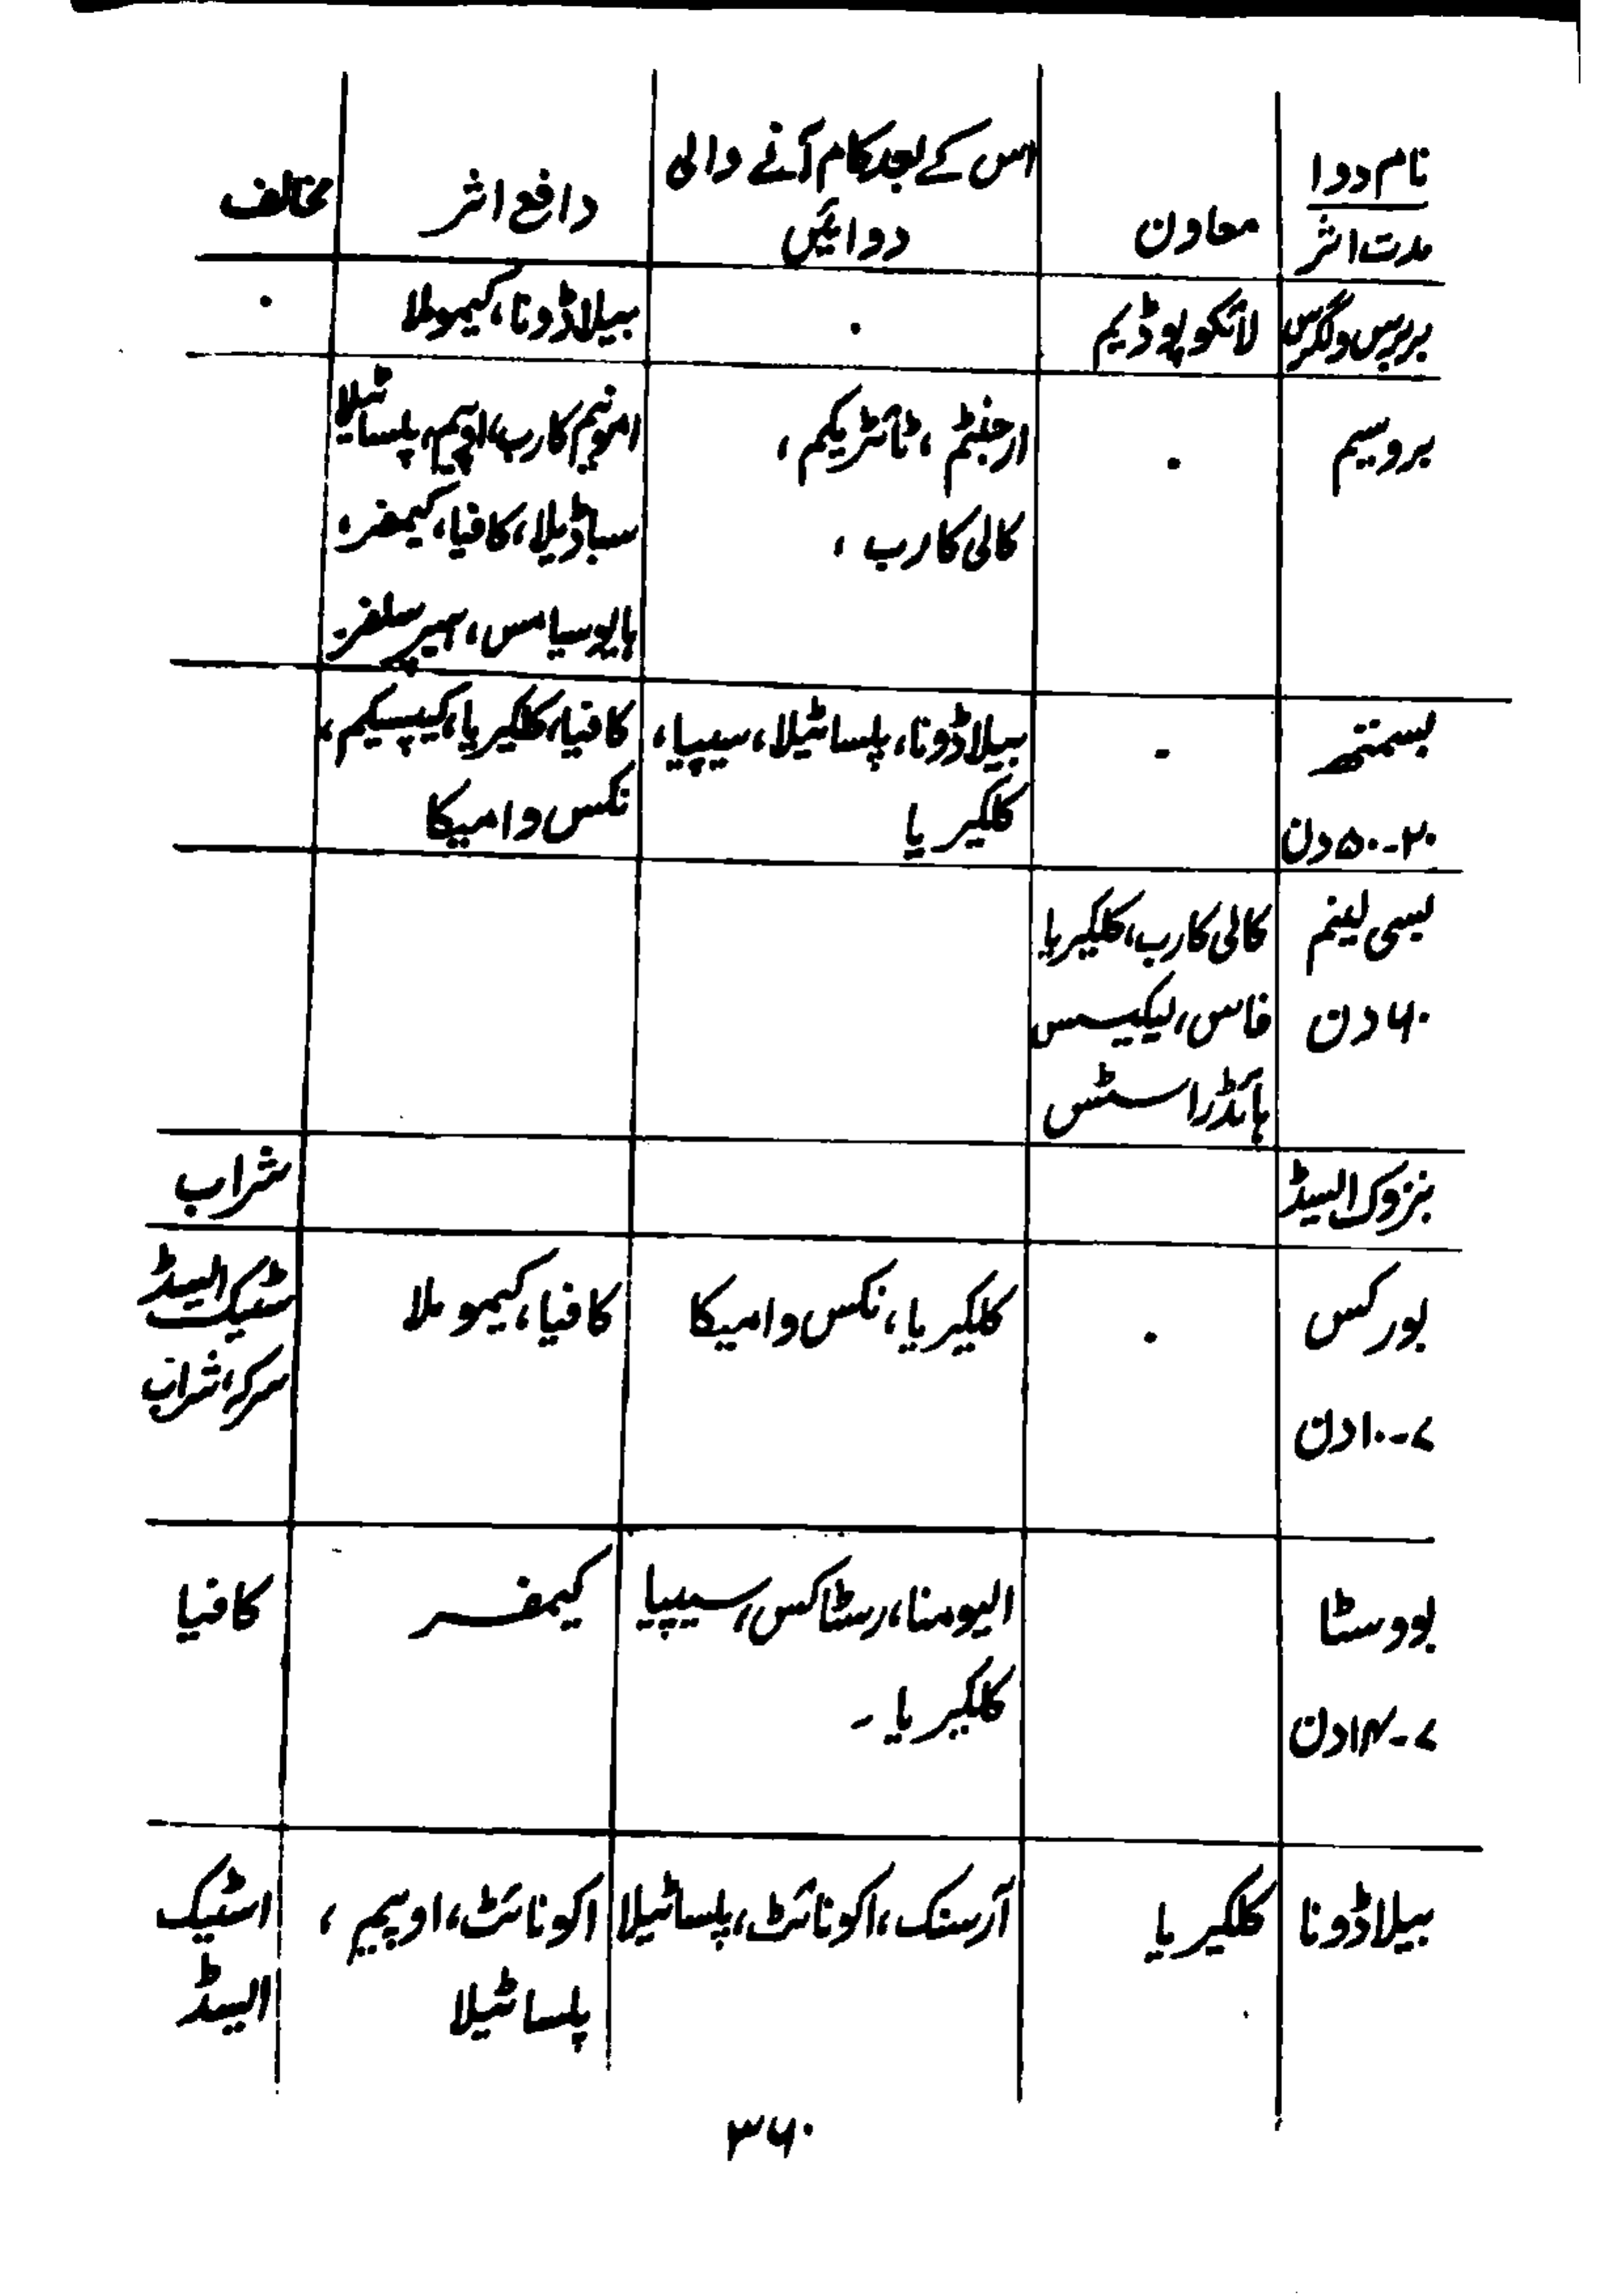 نام دوا
مدت اثر
معاون
اس کے بعد کام آنے والی
دوائیں
دافع اثر
مخالف
بربرس ولگرس
لائکو پوڈیم
۰
بیلاڈونا، کیموملا
۰
بروسیم
۰
ارجنٹم ، نائٹریکم ،
کالی کارب ،
امونیم کارب، اوپیم، پلساٹیلا
سباڈیلا، کافیا، کیمفر،
ہایوسیامس، ہیپر سلفر۔
بسمتھر
۲۰-۵۰ دن
-
بیلاڈونا، پلساٹیلا، سیپیا،
کلکیریا
کافیا، کلکیریا، کیپسیکم،
نکس وامیکا
بسی لینم
۶۰ دن
کالی کارب، کلکیریا
فاس، لیکیسس
ہائڈراسٹس
بنزوک ایسڈ
شراب
بورکس
۷-۱۰ دن
۰
کلکیریا، نکس وامیکا
کافیا، کیموملا
سٹیک ایسڈ
سرکہ، شراب
بووسٹا
۷-۱۴ دن
الیومنا، رسٹاکس، سیپیا
کلکیریا ۔
کیمفر
کافیا
بیلاڈونا
کلکیریا
آرسنک، اکونائٹ، پلساٹیلا
اکونائٹ، اوپیم ،
پلساٹیلا
اسٹیک
ایسڈ
۳۶۰